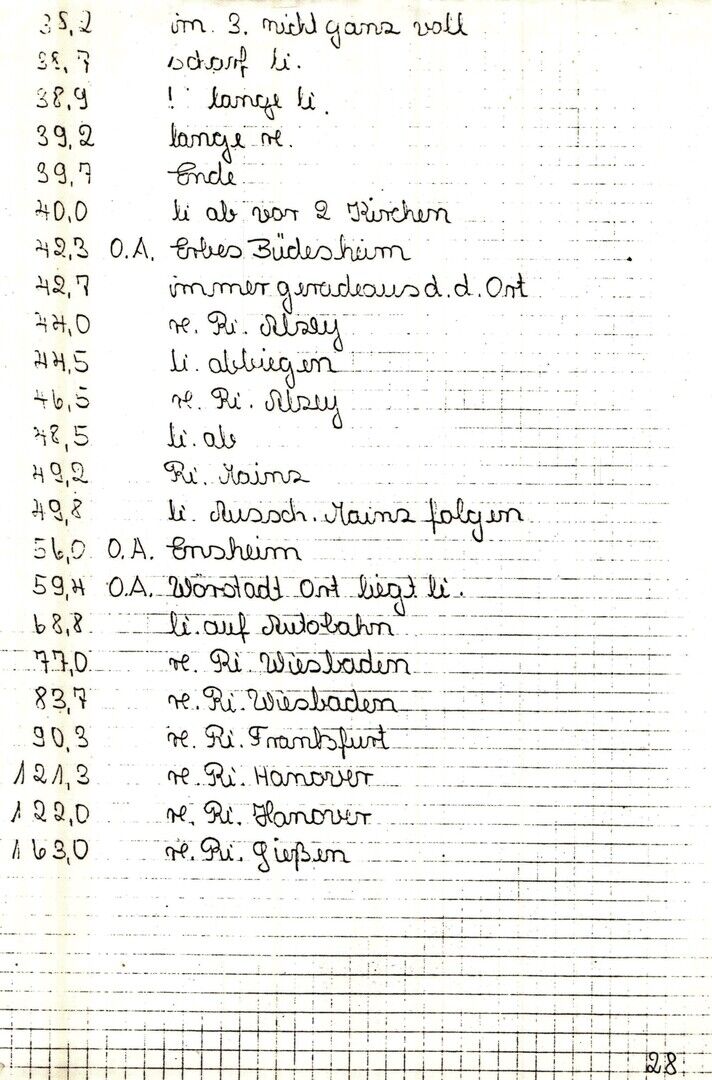 38,2 im 3. nicht ganz voll
38,7 scharf li.
38,9 ! lange li.
39,2 lange re.
39,7 Ende
40,0 li ab vor 2 Kirchen
42,3 O.A. Erbes Büdesheim
42,7 immer geradeaus d. d. Ort
44,0 re. Ri. Alzey
44,5 li. abbiegen
46,5 re. Ri. Alzey
48,5 li. ab
49,2 Ri. Mainz
49,8 li. Aussch. Mainz folgen
56,0 O.A. Ensheim
59,4 O.A. Wörstadt Ort liegt li.
68,8 li. auf Autobahn
77,0 re. Ri. Wiesbaden
83,7 re. Ri. Wiesbaden
90,3 re. Ri. Frankfurt
121,3 re. Ri. Hanover
122,0 re. Ri. Hanover
163,0 re. Ri. Gießen
28